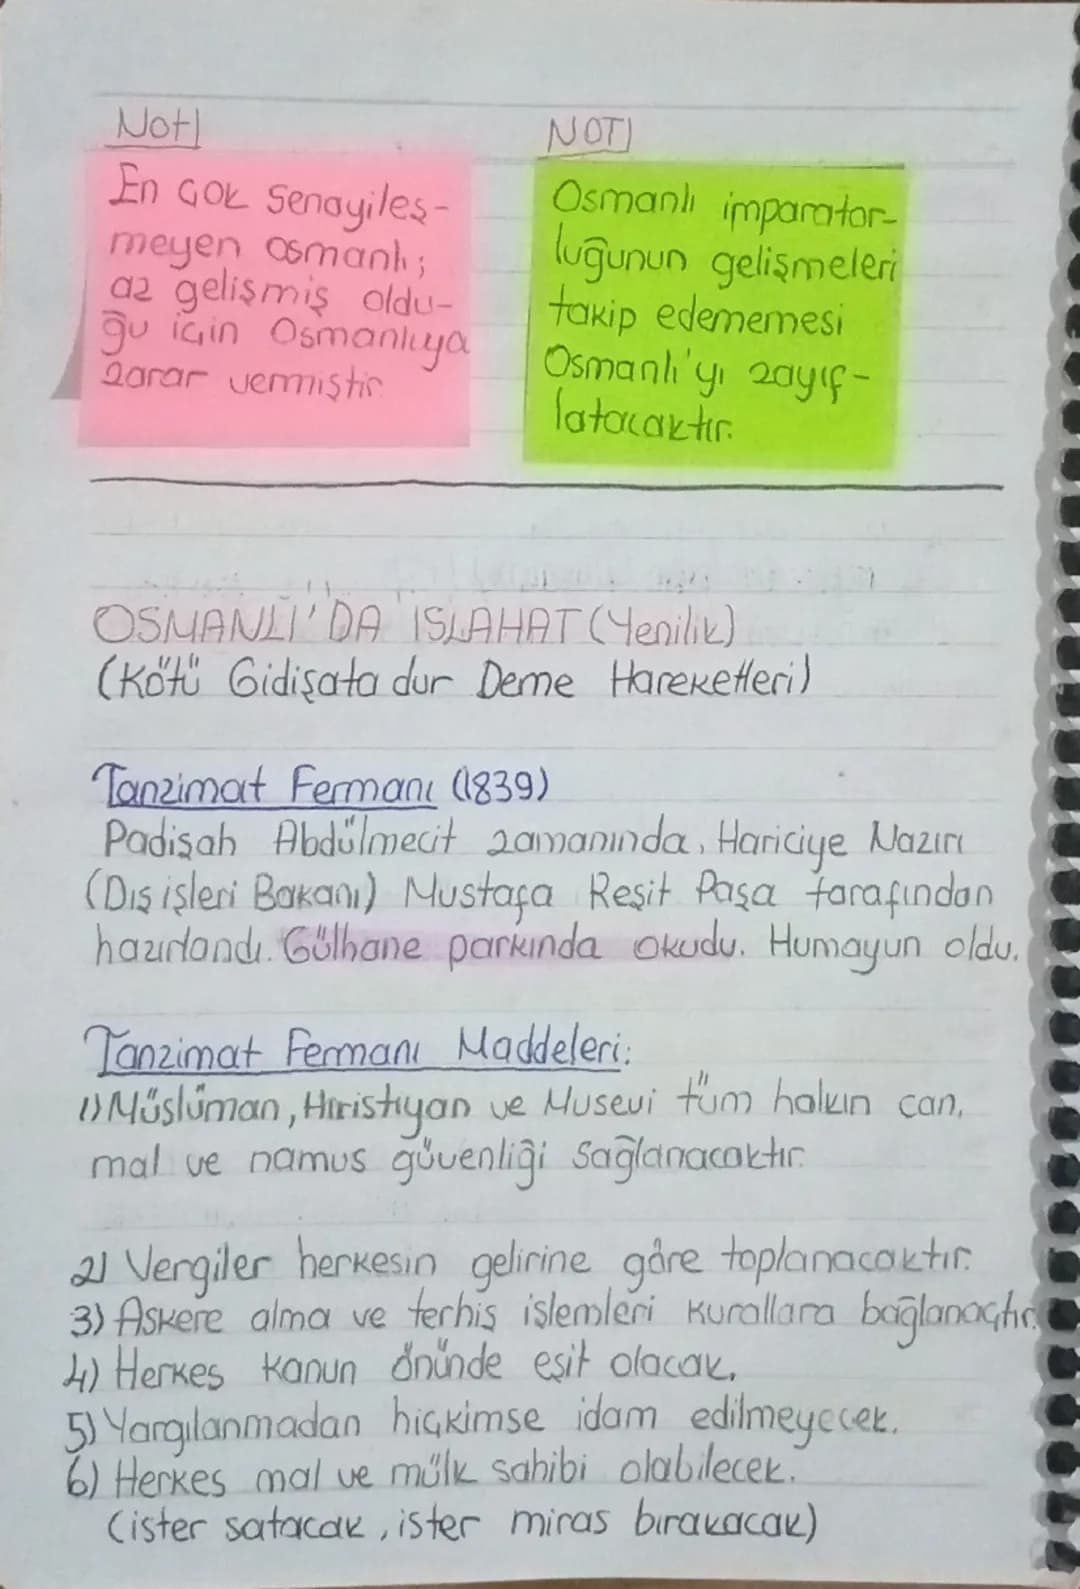 Not!
En çok Senayileş-
meyen osmanlı;
az gelişmiş oldu-
ğu için Osmanlıya
zarar vermiştir.
NOT!
Osmanlı imparator-
luğunun gelişmeleri
takip edememesi
Osmanlı'yı zayıf-
latacaktır.
OSMANLI'DA ISLAHAT (Yenilik)
(Kötü Gidişata dur Deme Hareketleri)
Tanzimat Fermanı (1839)
Padişah Abdülmecit zamanında, Hariciye Nazırı
(Dış işleri Bakanı) Mustafa Reşit Paşa tarafından
hazırlandı. Gülhane parkında okudu. Humayun oldu.
Tanzimat Fermanı Maddeleri:
1) Müslüman, Hıristiyan ve Musevi tüm halkın can,
mal ve namus güvenliği sağlanacaktır.
2) Vergiler herkesin gelirine göre toplanacaktır.
3) Askere alma ve terhis işlemleri kurallara bağlanaçtır.
4) Herkes kanun önünde eşit olacak.
5) Yargılanmadan hiçkimse idam edilmeyecek.
6) Herkes mal ve mülk sahibi olabilecek.
(ister satacak, ister miras bırakacak)